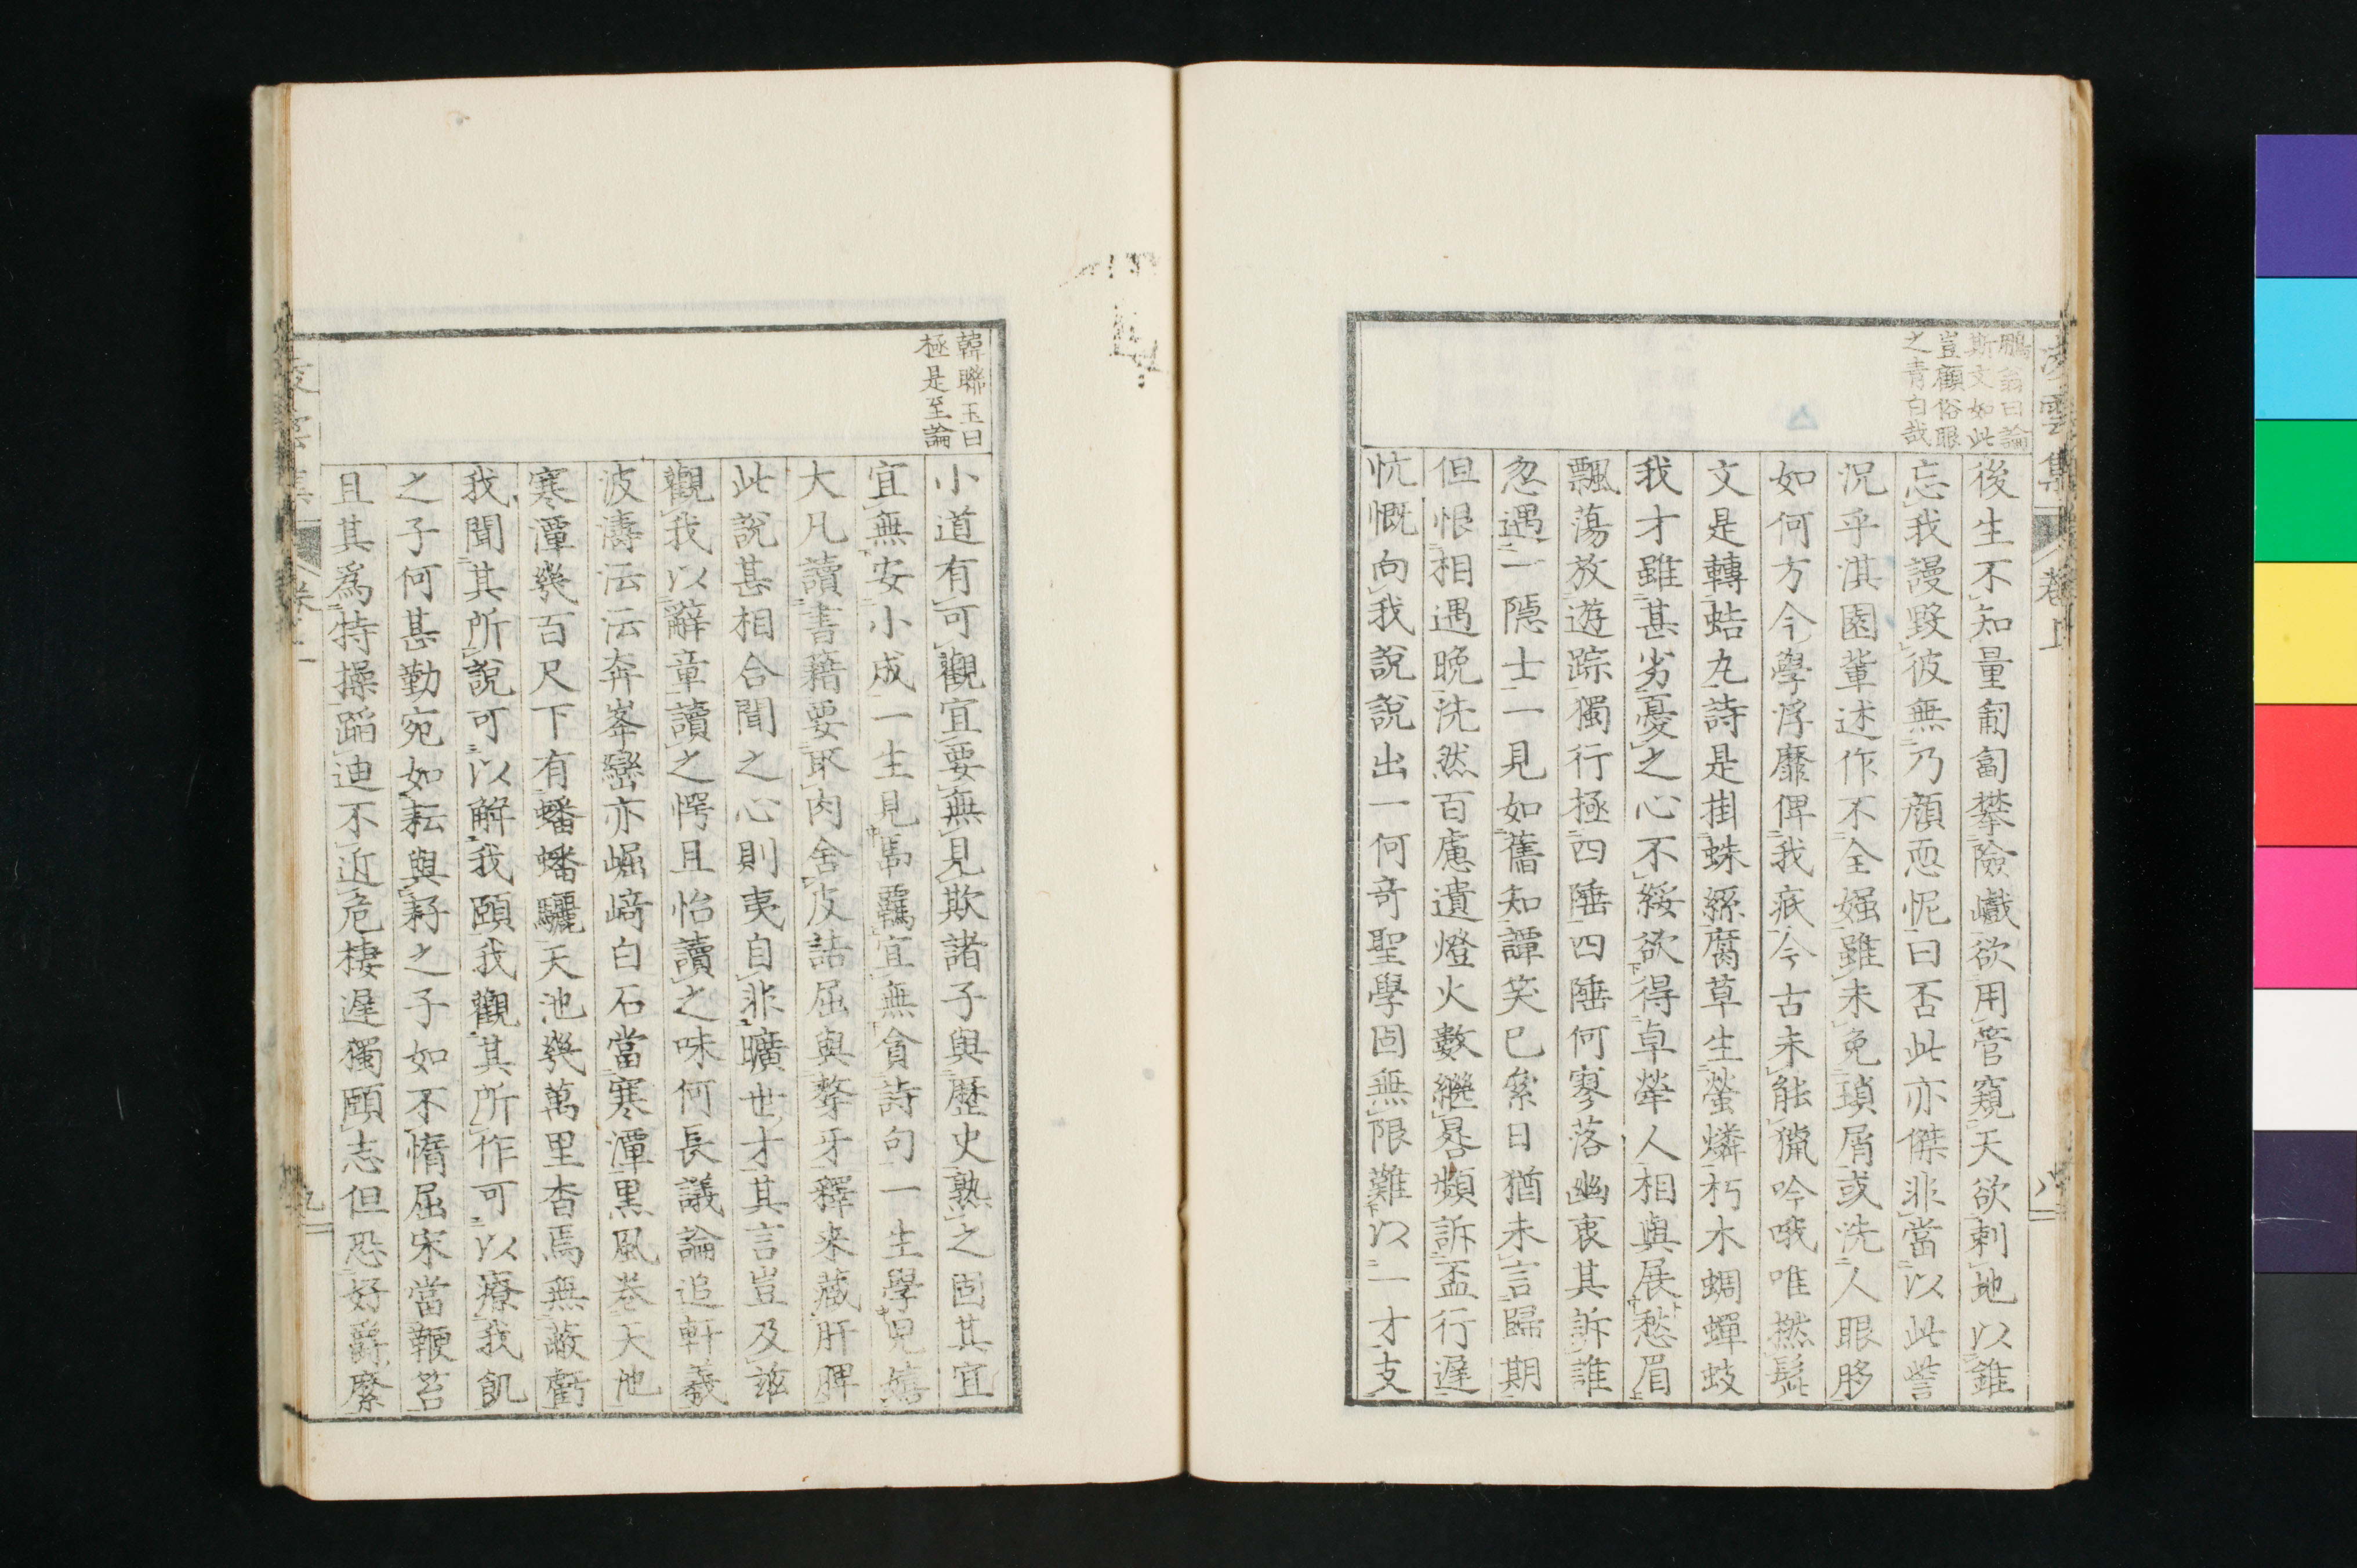 凌雲集
卷上
八
鵬翁曰論
斯文如此
豈顧俗眼
之青白哉
後生不知量匍匐攀險巇欲用管窺天欲刺地以錐
忘我謾毀彼無乃顏恧怩曰否此亦傑非當以此訾
況乎淇園輩述作不全媸雖未免瑣屑或洗人眼眵
如何方今學浮靡俾我疧今古未能獵吟哦唯撚髭
文是轉蛣丸詩是掛蛛絲腐草生螢燐朽木蜩蟬蚑
我才雖甚劣憂之心不綏欲得卓犖人相與展愁眉
飄蕩放遊踪獨行極四陲四陲何寥落幽衷其訴誰
忽遇一隱士一見如舊知譚笑已絫日猶未言歸期
但恨相遇晚洗然百慮遺燈火數繼晷頻訴盃行遲
忼慨向我說說出一何奇聖學固無限難以一才支
韓聯玉曰
極是至論
小道有可觀宜要無見欺諸子與歷史熟之固其宜
宜無安小成一生見馽覊宜無貪詩句一生學兒嬉
大凡讀書籍要取肉舍皮詰屈與聱牙釋来藏肝脾
此說甚相合聞之心則夷自非曠世才其言豈及茲
觀我以辭章讀之愕且怡讀之味何長議論追軒羲
波濤沄沄奔峯巒亦崛﨑白石當寒潭黒風卷天池
寒潭幾百尺下有蟠蟠驪天池幾萬里杳焉無蔽虧
我聞其所說可以解我頤我觀其所作可以療我飢
之子何甚勤宛如耘與耔之子如不惰屈宋當鞭笞
且其爲特操蹈迪不近危棲遲獨頤志但恐好爵縻
九